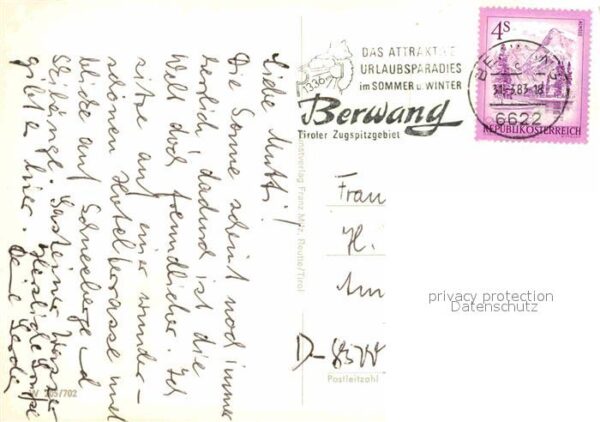 Liebe Mutti!
Die Sonne scheint noch immer
herrlich, dadurch ist die
Welt doch freundlicher. Ich
sitze auf einer wunder-
schönen Hotelterrasse mit
Blick auf Schneeberge u
Skihänge. Gasteiner Wasser
gibt es hier. Herzliche Grüße
Deine
W 205/702
Kunstverlag Franz Milz, Reutte/Tirol
1336 m
DAS ATTRAKTIVE
URLAUBSPARADIES
im SOMMER u. WINTER
Berwang
Tiroler Zugspitzgebiet
4S
ALMSEE
REPUBLIK ÖSTERREICH
BERWANG
31.-3.83-18
6622
Frau
H.
Am
D-
Postleitzahl
privacy protection
Datenschutz